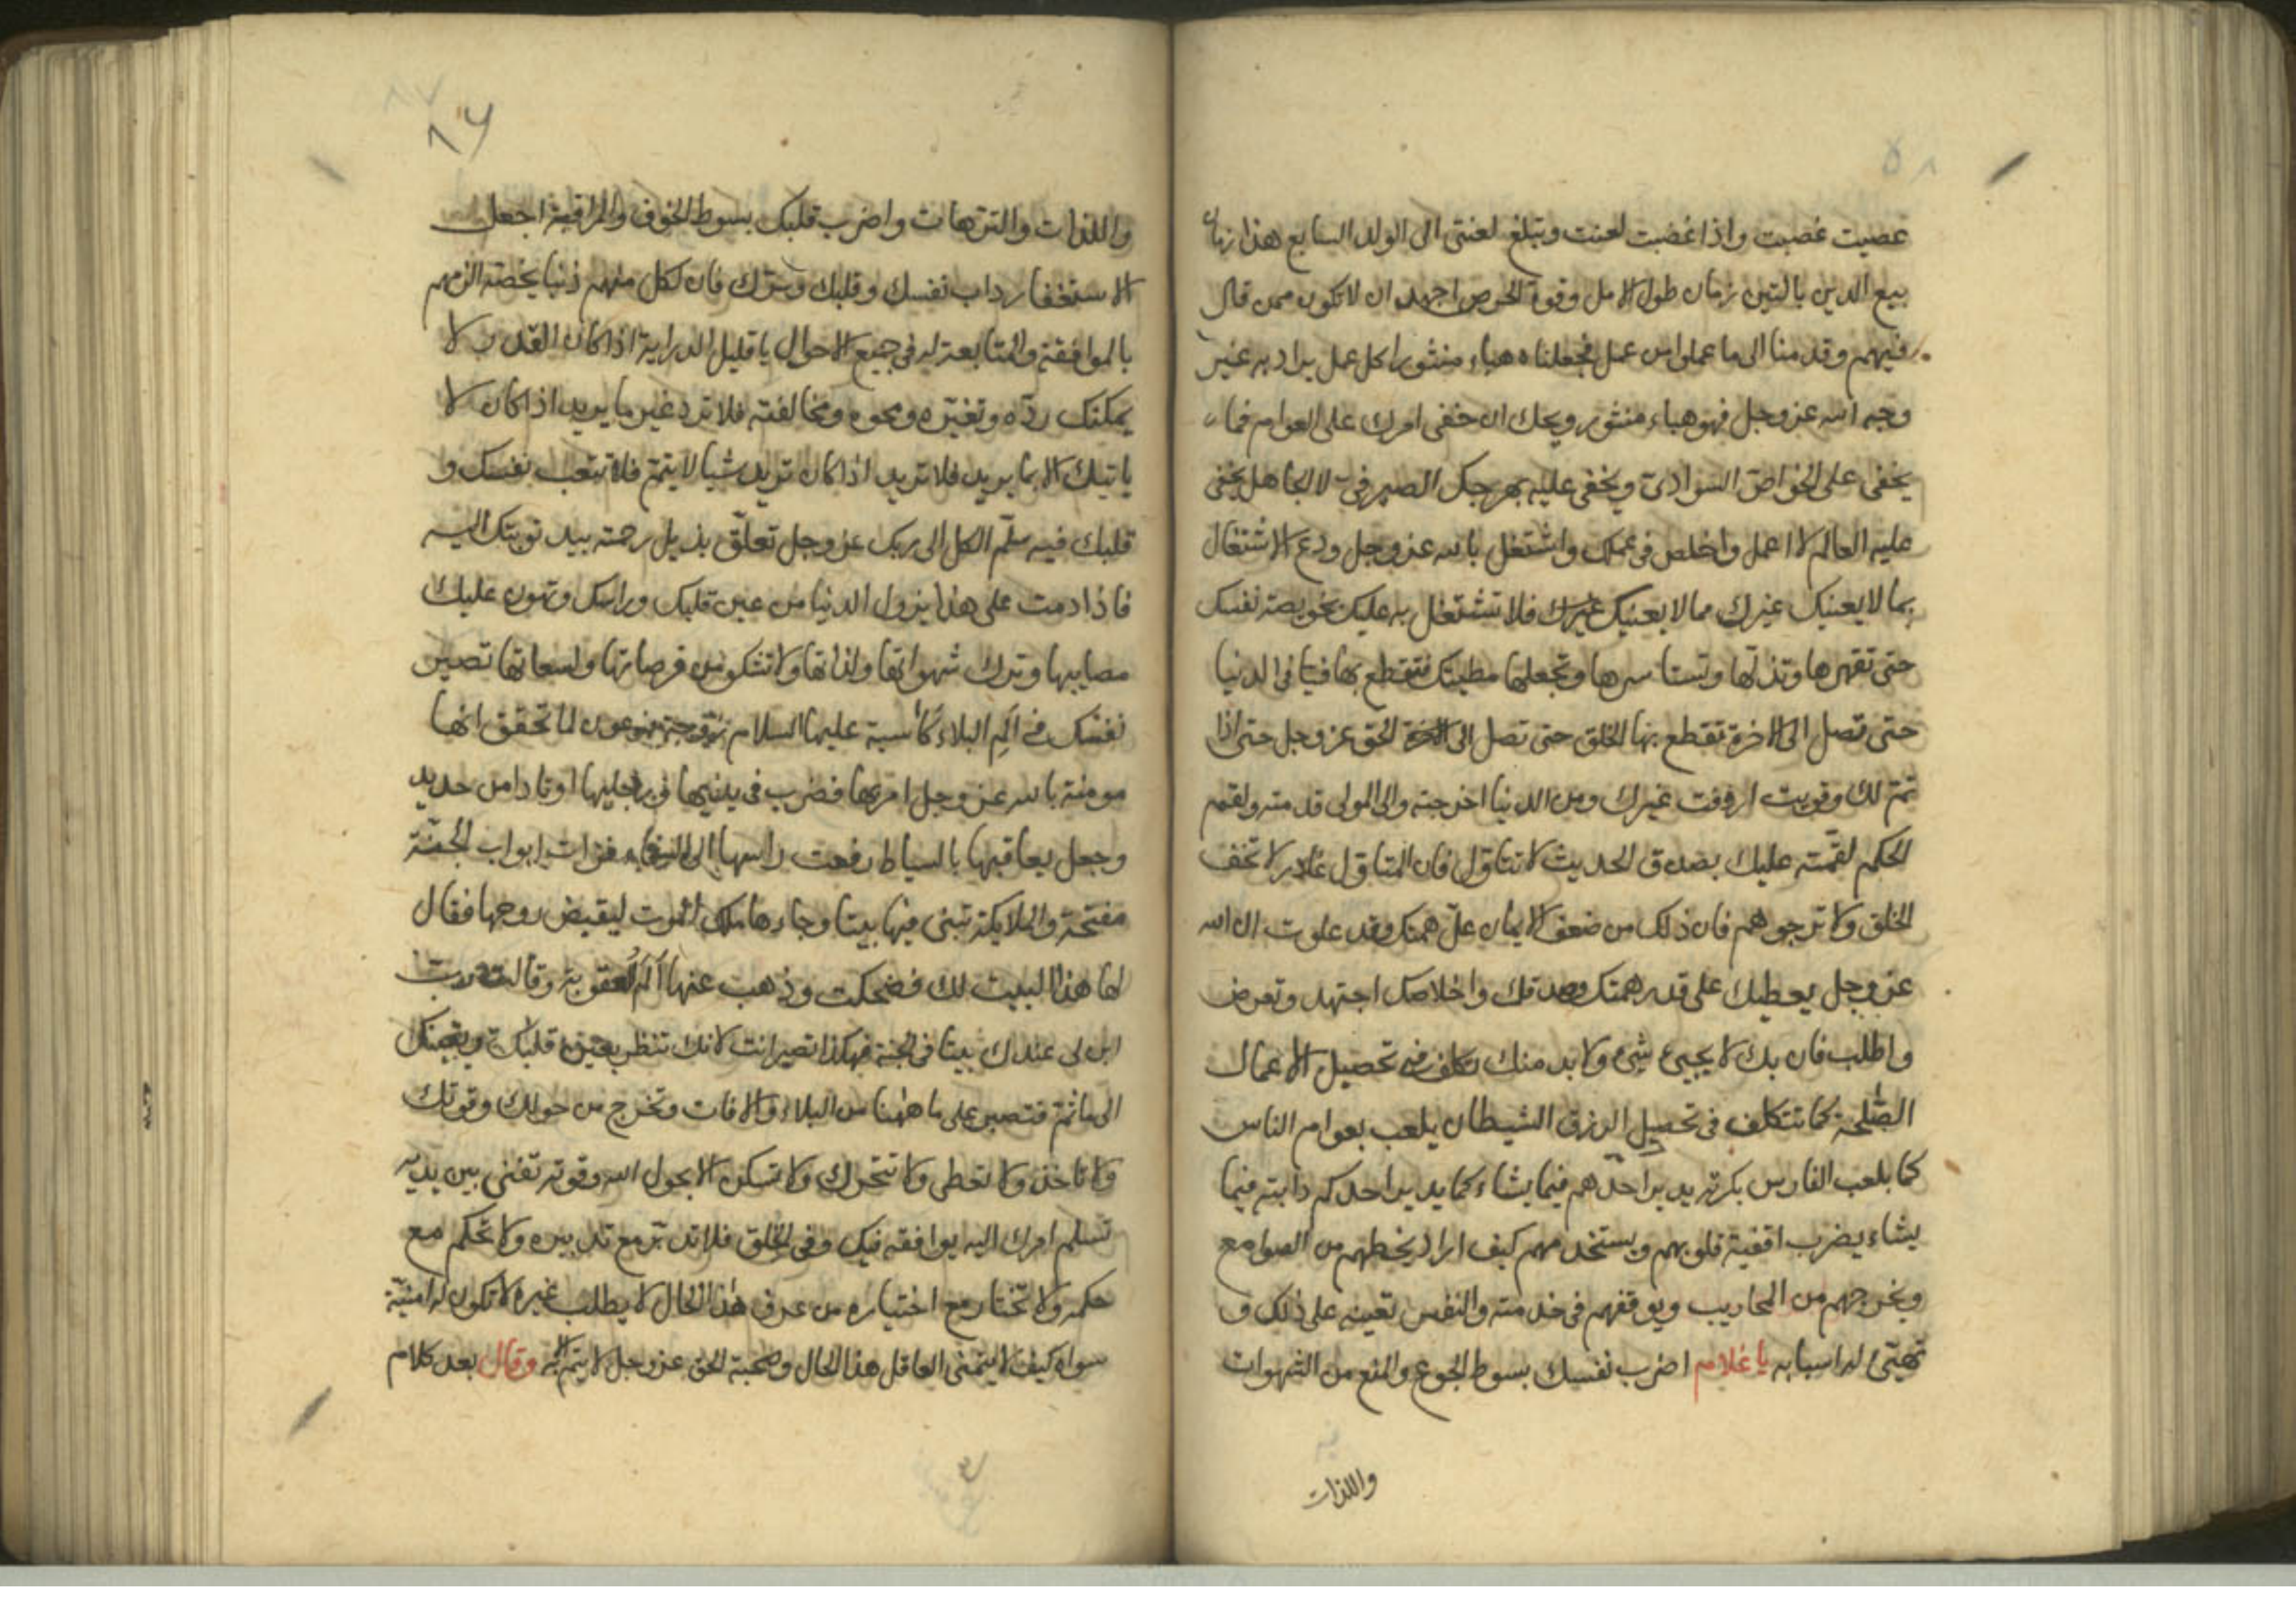 عصيت غضبت واذا غضبت لعنت وتبلغ لعنتى الى الولد السابع هذا زمان
بيع الدين بالتين زمان طول الامل وقوة الحرص اجهد ان لا تكون ممن قال
فيهم وقدمنا الى ما عملوا من عمل فجعلناه هباء منثورا كل عمل يراد به غير
وجه الله عز وجل فهو هباء منثور ويحك ان خفى امرك على العوام فما
يخفى على الخواص السوادى ويخفى عليه بهرجك الصيرفى لا الجاهل يخفى
عليه العالم لا اعمل واخلص فى عملك واشتغل بالله عز وجل ودع الاشتغال
بما لا يعنيك غيرك مما لا يعنيك غيرك فلا تشتغل به عليك بخويصة نفسك
حتى تقهرها وتذلها وتستاسرها وتجعلها مطيتك فتقطع بها فيافى الدنيا
حتى تصل الى الاخرة تقطع بها الخلق حتى تصل الى الحق عز وجل حتى اذا
تم لك وقويت اردفت غيرك ومن الدنيا اخرجته والى المولى قدمته ولقم
الحكم لقمته عليك بصدق الحديث لا تتاول فان المتاول غادر لا تخف
الخلق ولا ترجوهم فان ذلك من ضعف الايمان علّ همتك وقد علوت ان الله
عز وجل يعطيك على قدر همتك وصدقك واخلاصك اجتهد وتعرض
واطلب فان بك لا يجيئ شئ ولا بد منك تكلف فى تحصيل الاعمال
الصلحة كما تتكلف فى تحصيل الرزق الشيطان يلعب بعوام الناس
كما يلعب الفارس بكرته يدير احدهم فيما يشاء كما يدير احدكم دابته فيما
يشاء يضرب اقفية قلوبهم ويستخدمهم كيف اراد يحطهم من الصوامع
ويخرجهم من المحاريب ويوقفهم فى خدمته والنفس تعينه على ذلك و
تهيئ له اسبابه يا غلام اضرب نفسك بسوط الجوع والمنع من الشهوات
واللذات
٨٦
واللذات والترهات واضرب قلبك بسوط الخوف والمراقبة اجعل
الاستغفار داب نفسك وقلبك وسرك فان لكل منهم ذنبا يخصه الزمهم
بالموافقة والمتابعة له فى جميع الاحوال يا قليل الدراية اذا كان القدر لا
يمكنك رده وتغيره ومحوه ومخالفته فلا ترد غير ما يريد اذا كان لا
ياتيك الا بما يريد فلا تريد اذا كان تريد شيا لا يتم فلا تتعب نفسك و
قلبك فيه سلم الكل الى ربك عز وجل تعلق بذيل رحمته بيد توبتك اليه
فاذا دمت على هذا يزول الدنيا من عين قلبك وراسك وتهون عليك
مصايبها وترك شهواتها ولذاتها ولا تشكو من قرصاتها ولسعاتها تصير
نفسك فى الم البلاء كآسية عليها السلام زوجة فرعون لما تحقق انها
مومنة بالله عز وجل امر بها فضرب فى يديها وفى رجليها اوتادا من حديد
وجعل يعاقبها بالسياط رفعت راسها الى السماء فرات ابواب الجنة
مفتحة والملايكة تبنى فيها بيتا وجاءها ملك الموت ليقبض روحها فقال
لها هذا البيت لك فضحكت وذهب عنها الم العقوبة وقالت رب
ابن لى عندك بيتا فى الجنة فهكذا تصير انت لانك تنظر بعين قلبك ويقينك
الى ما ثم فتصبر على ما ههنا من البلاء والافات وتخرج من حولك وقوتك
ولا تاخذ ولا تعطى ولا تتحرك ولا تسكن الا بحول الله وقوته تفنى بين يديه
تسلم امرك اليه يوافقه فيك وفى الخلق فلا تدبر مع تدبيره ولا تحكم مع
حكمه ولا تختار مع اختياره من عرف هذا الحال لا يطلب غيره لا تكون له امنية
سواه كيف لا يتمنى العاقل هذا الحال وصحبة الحق عز وجل لا يتم الا به وقال بعد كلام